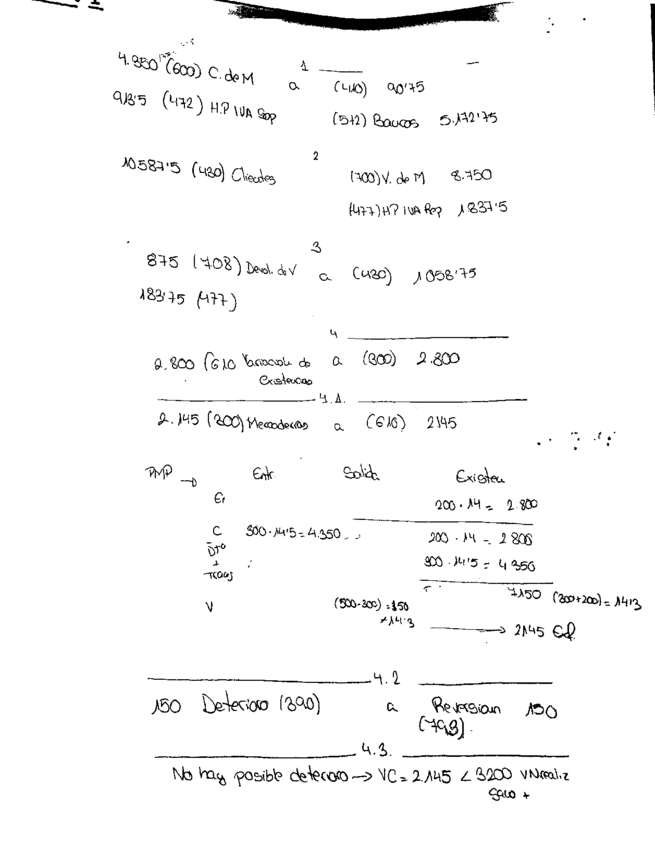 1
4.350 (600) C. de M a (410) 90'75
913'5 (472) H.P IVA Sop (572) Bancos 5.172'75
2
10.587'5 (430) Clientes (700) V. de M 8.750
(477) HP IVA Rep 1837'5
3
875 (708) Devol. de V a (430) 1058'75
183'75 (477)
4
2.800 (610 Variación de a (300) 2.800
Existencias
4.1.
2.145 (300) Mercaderías a (610) 2145
PMP → Entr Salida Existen
Ei 200 · 14 = 2.800
C 300 · 14'5 = 4.350 200 · 14 = 2800
Dto 300 · 14'5 = 4350
+
Trans
7150 (300+200) = 14'3
V (500-300) = 150
x14'3 → 2145 Ef.
4.2
150 Deterioro (390) a Reversion 150
(793).
4.3.
No hay posible deterioro → VC = 2.145 < 3200 VNrealiz